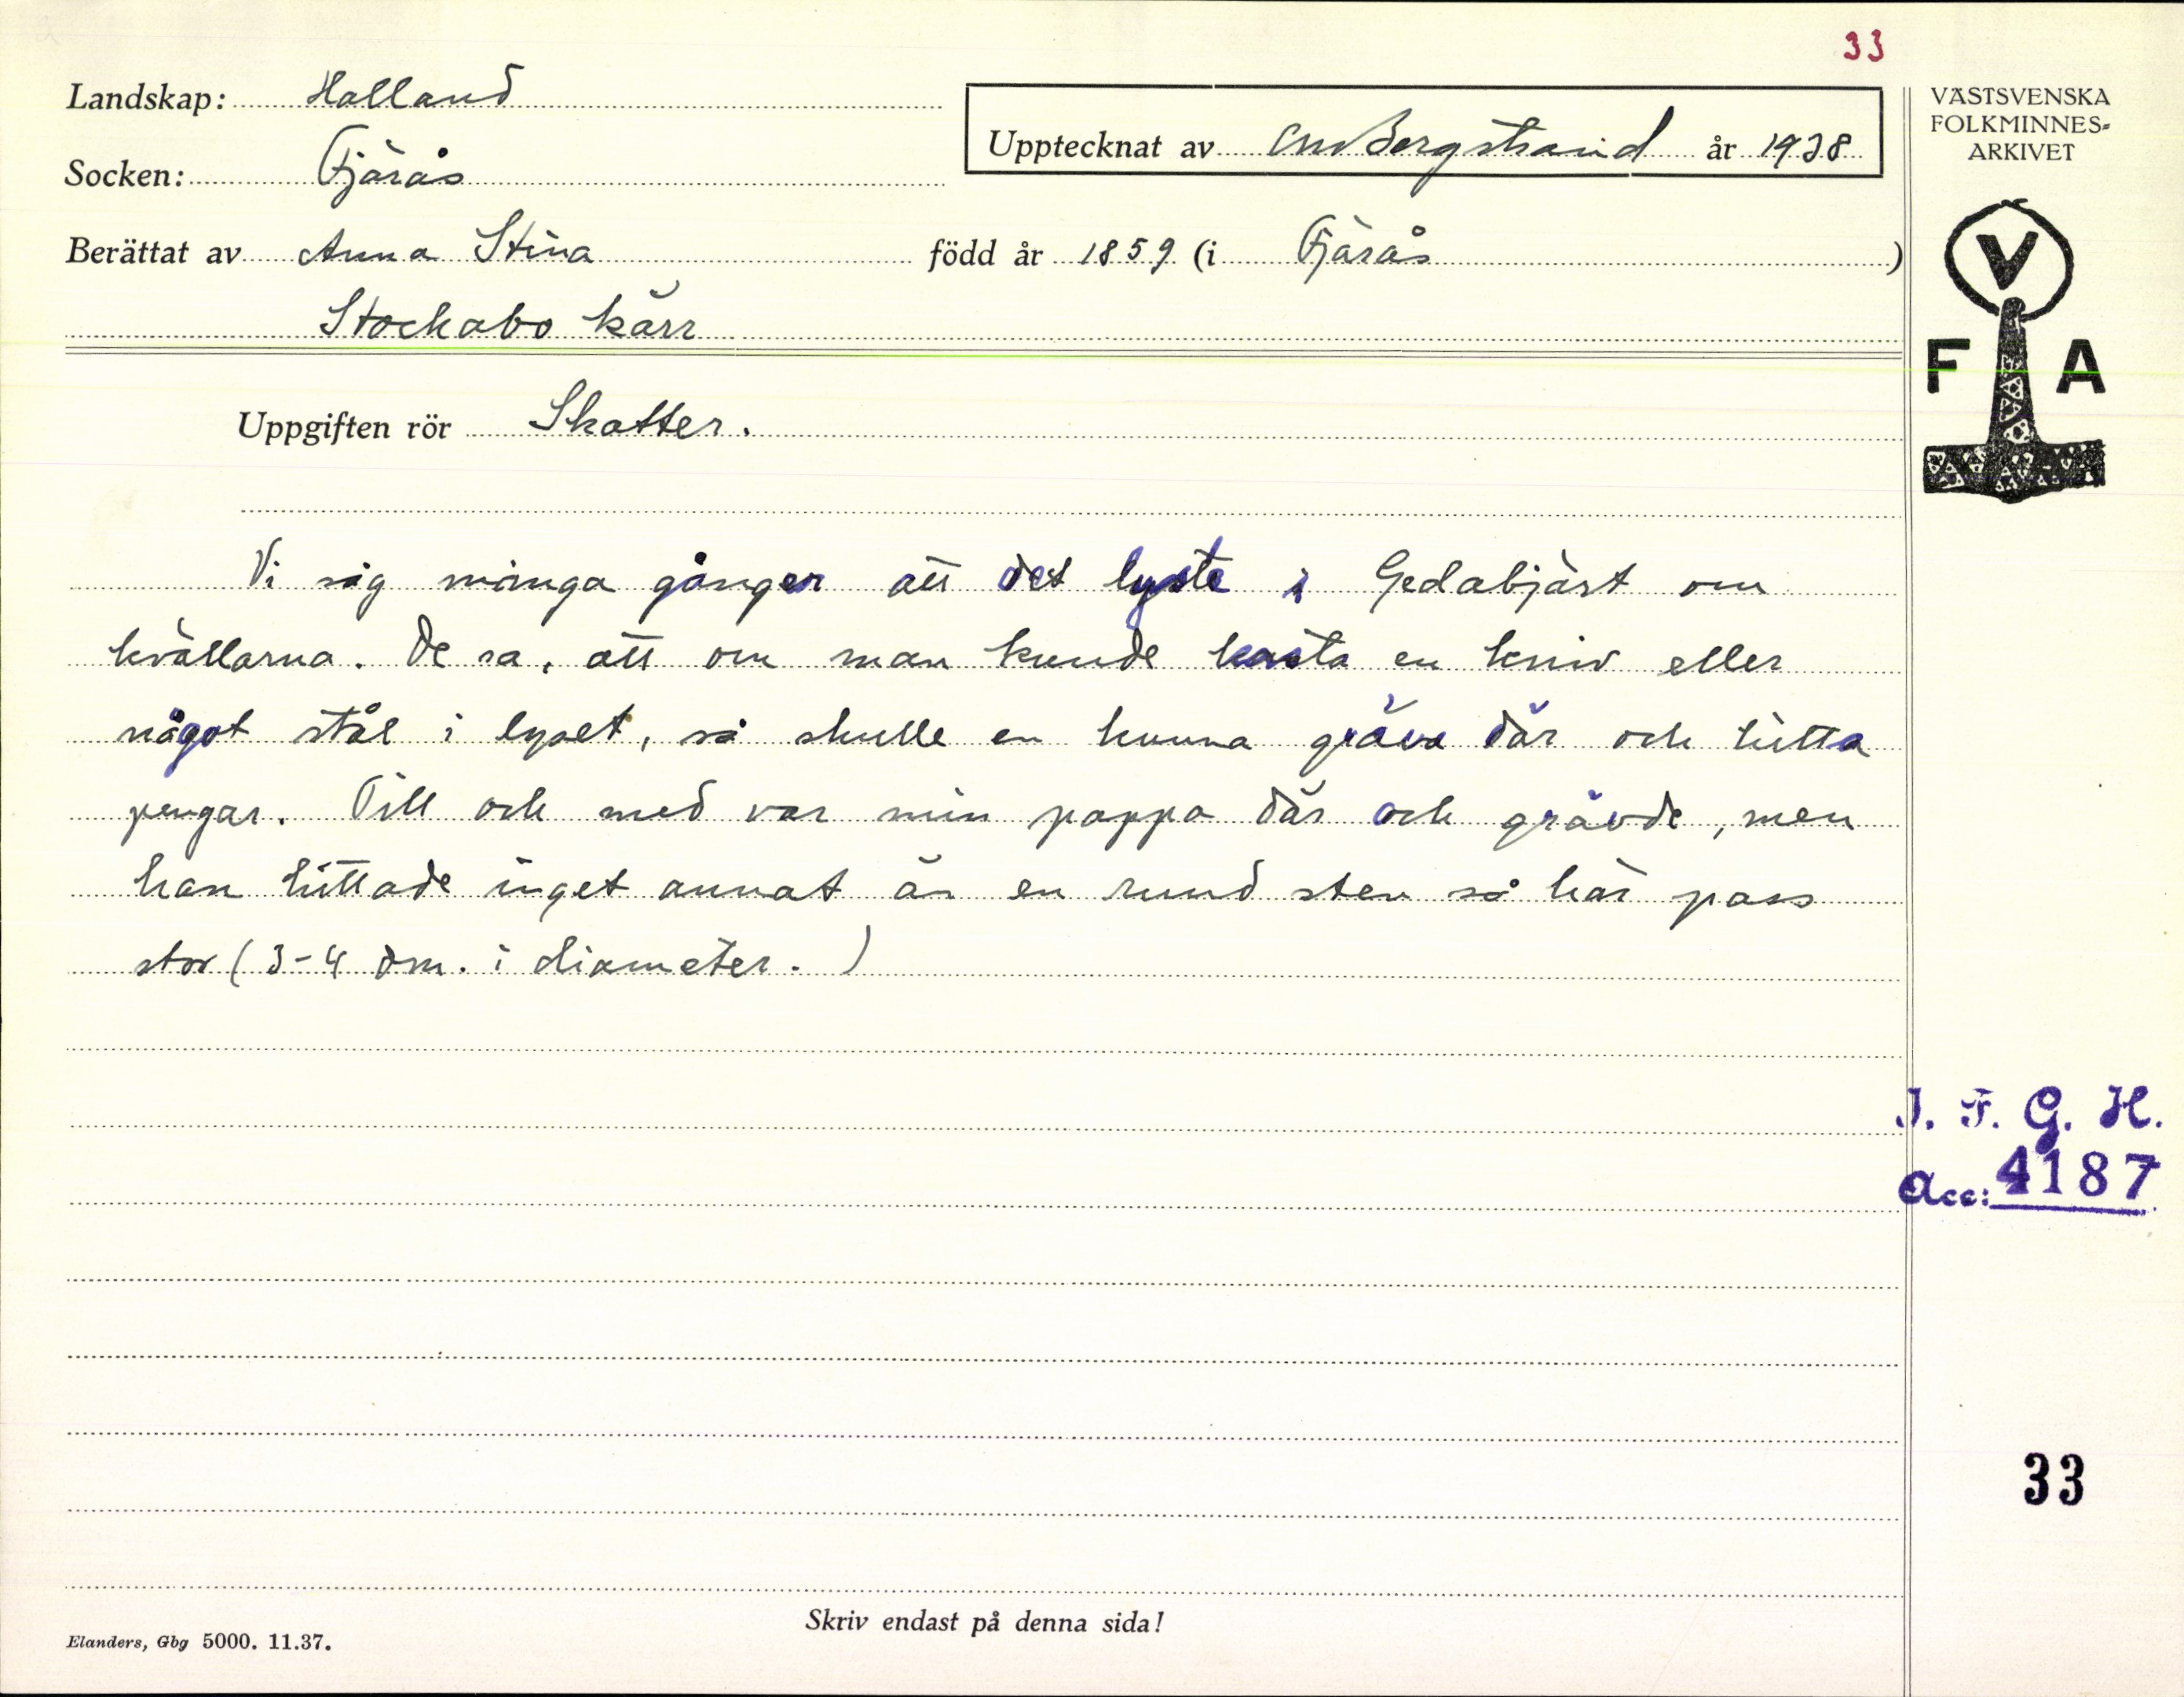 33
Landskap: Halland
Upptecknat av CMBergstrand år 1938
VÄSTSVENSKA
FOLKMINNES-
ARKIVET
Socken: Fjärås
Berättat av Anna Stina född år 1859 (i Fjärås)
Stockabo kärr
V
F A
Uppgiften rör Skatter.
Vi såg många gånger att det lyste i Gedabjärt om
kvällarna. De sa, att om man kunde kasta en kniv eller
något stål i lyset, så skulle en kunna gräva där och hitta
pengar. Till och med var min pappa där och grävde, men
han hittade inget annat än en rund sten så här pass
stor (3-4 dm. i diameter.)
I. F. G. H.
Acc: 4187
33
Skriv endast på denna sida!
Elanders, Gbg 5000. 11.37.